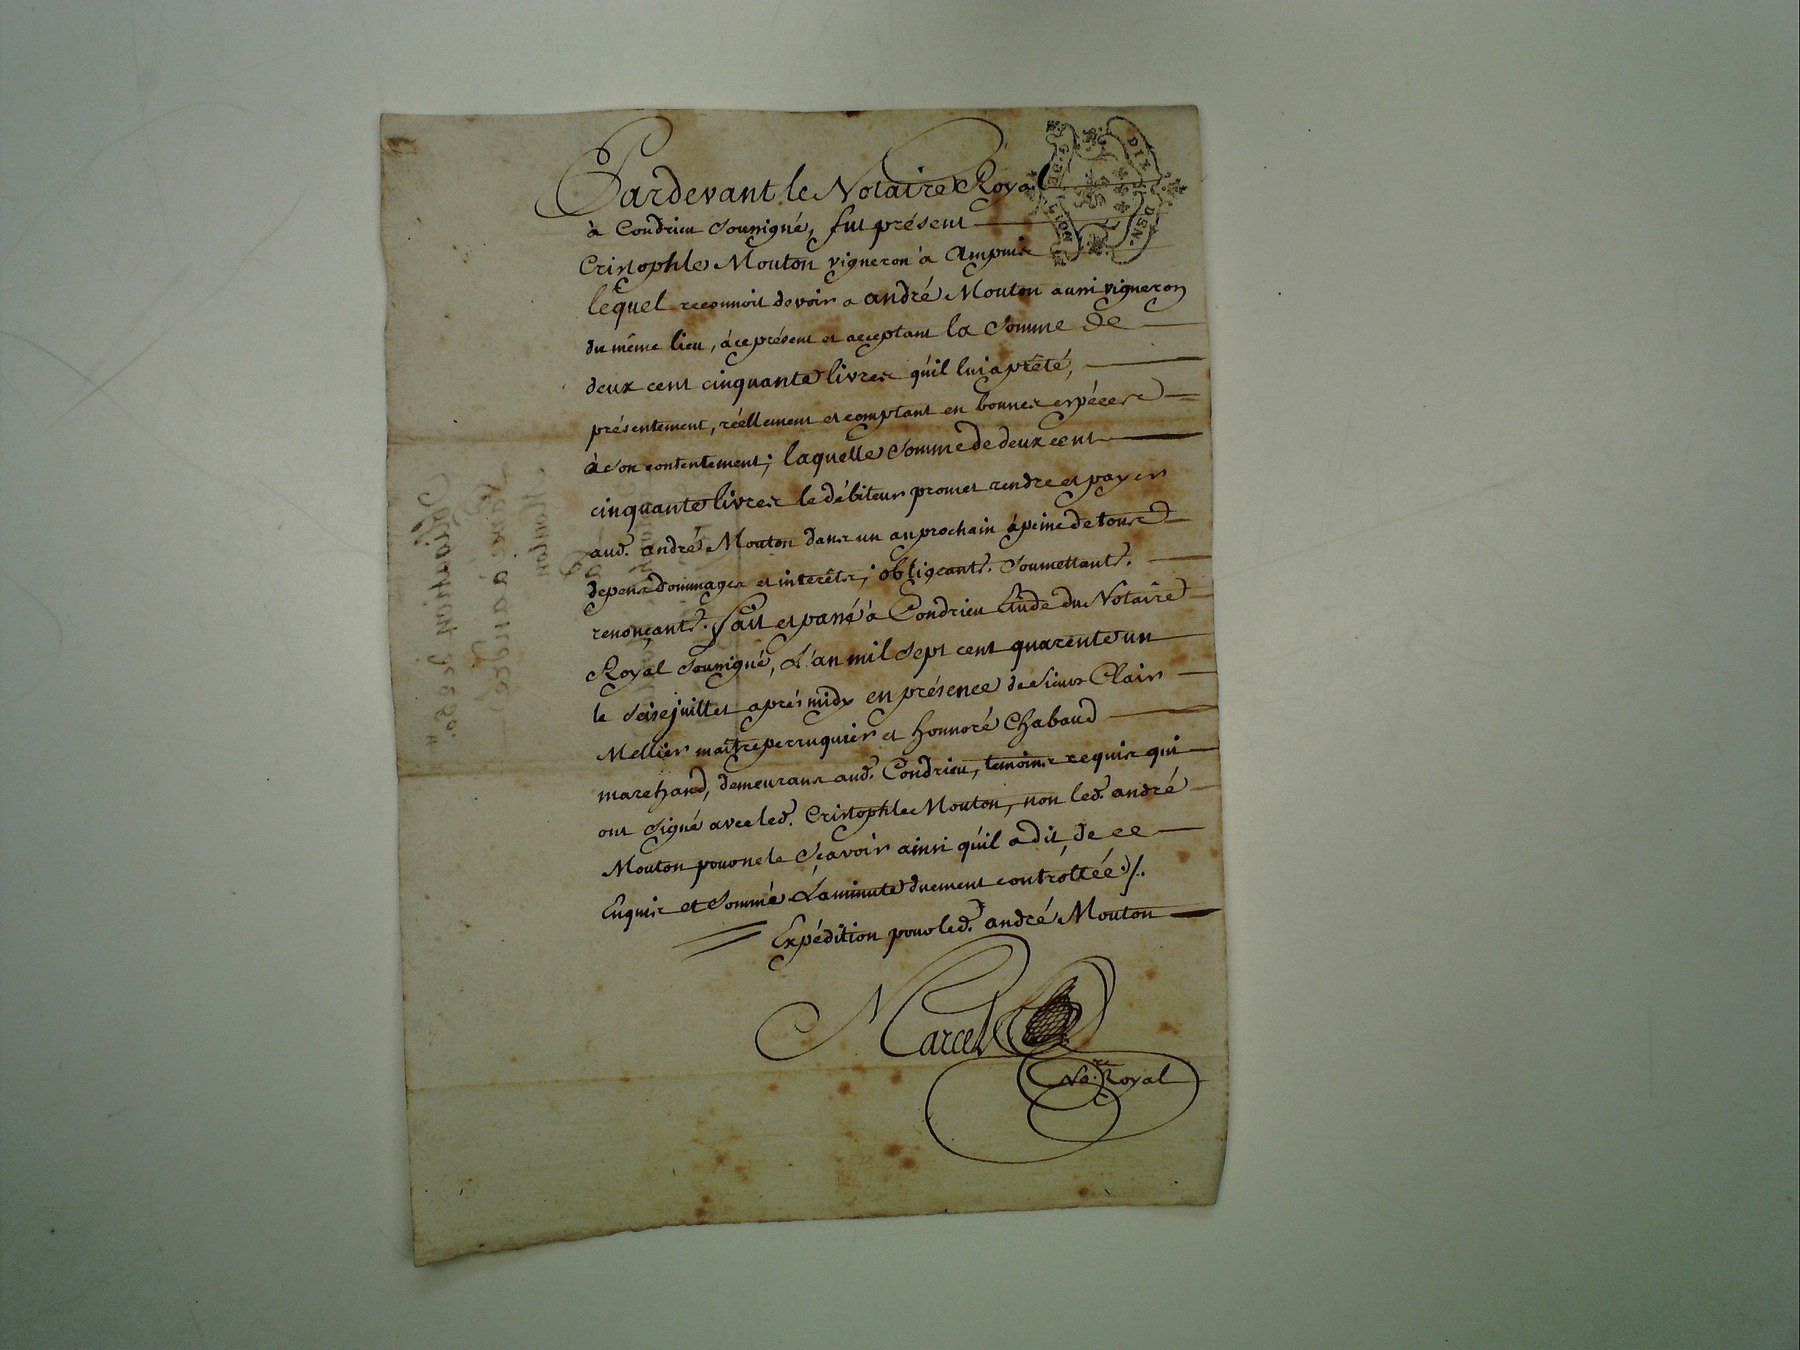 Pardevant le Notaire Royal
à Condrieu Soussigné, fut présent
Cristophle Mouton vigneron à Ampuis
lequel reconnoit devoir a andré Mouton aussi vigneron
du même lieu, à ce présent et acceptant la Somme de
deux cent cinquante livres qu'il lui a prêté,
présentement, réellement et comptant en bonnes espéces
à Son contentement; laquelle Somme de deux cent
cinquante livres le débiteur promet rendre et payer
aud. andré Mouton dans un an prochain à peine de tous
depens dommages et interêts; obligeant. Soumettant.
renonçant. Fait et passé à Condrieu Etude du Notaire
Royal Soussigné, L'an mil Sept cent quarente un
le Seise juillet aprés midy en présence de Sieur Clair
Mellier maitre perruquier et honnoré Chabaud
marchand, demeurans aud. Condrieu, temoins requis qui
ont Signé avec led. Cristophle Mouton, non led. andré
Mouton pour ne le Sçavoir ainsi qu'il a dit, de ce
Enquis et Sommé La minute duement controllée ./.
Expédition pour led. andré Mouton
Marcel
No.re Royal
G. DE LION
DIX DEN.
Obligation de 250"
Mouton